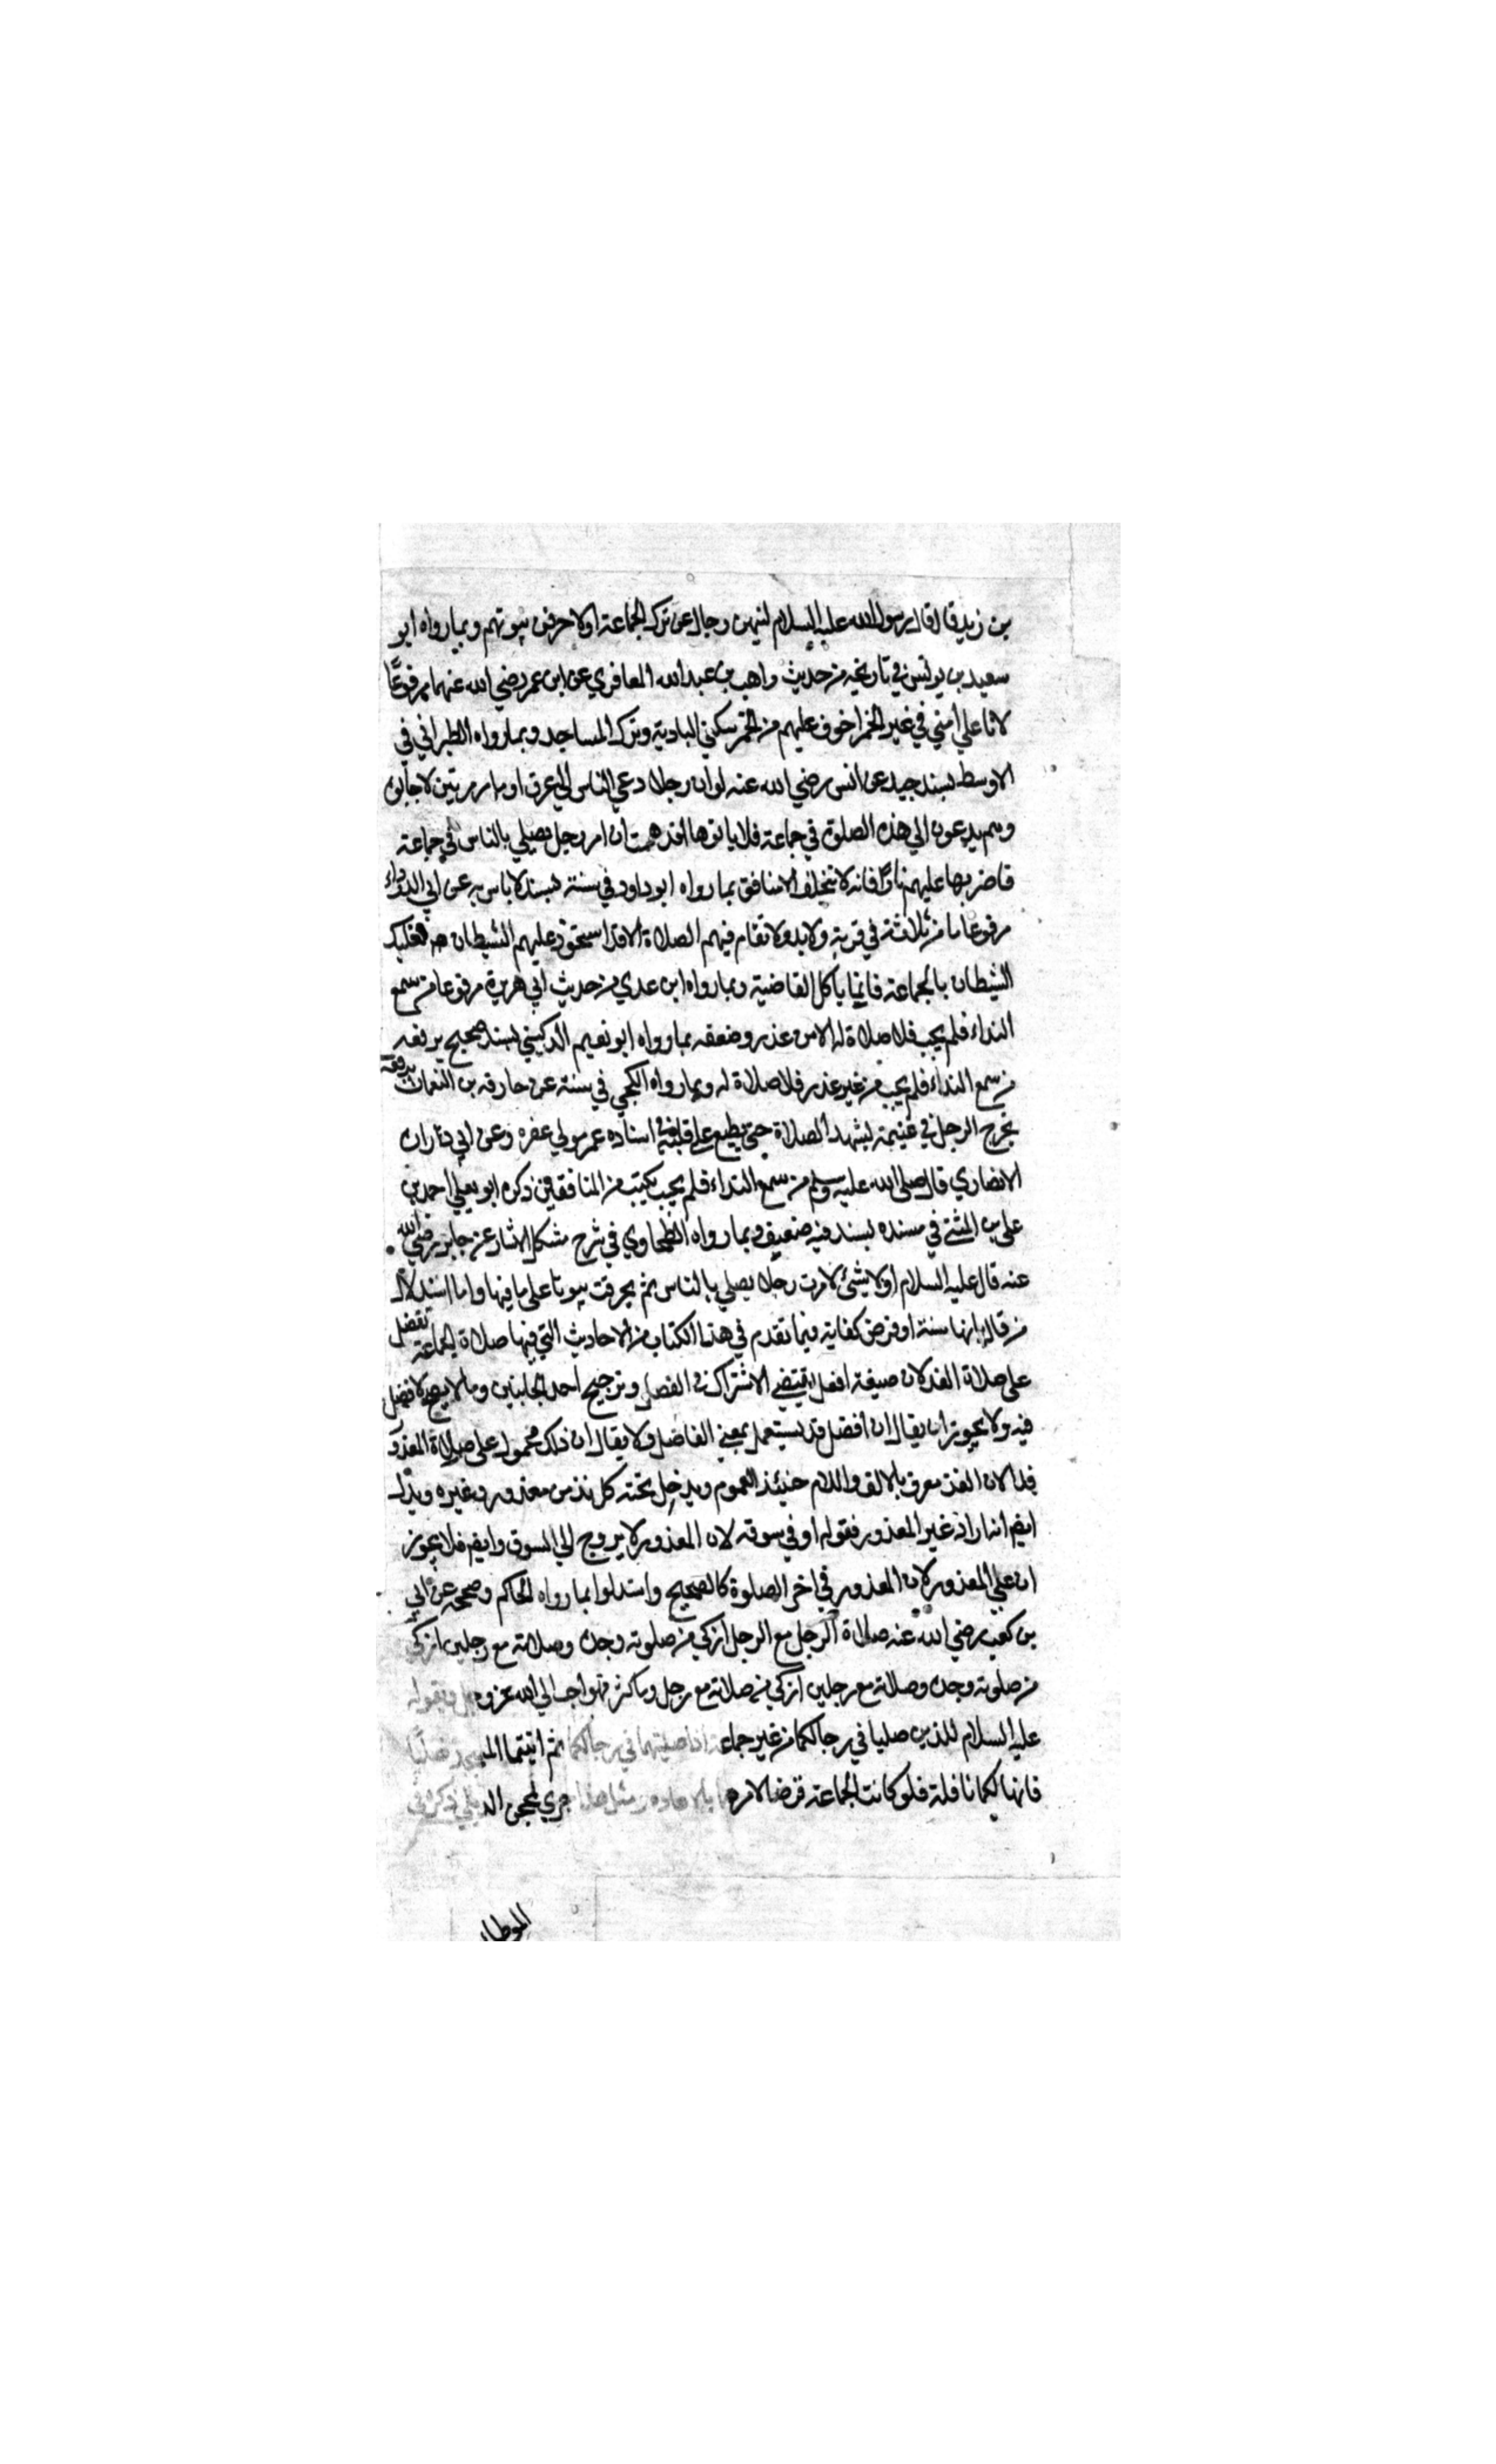 بن زيد قال قال رسول الله عليه السلام لينهين رجال عن ترك الجماعة او لاحرقن بيوتهم وبما رواه ابو
سعيد بن يونس في تاريخه من حديث واهب بن عبد الله المعافري عن ابن عمر رضي الله عنهما مرفوعًا
لانا على امتي في غير الخمر اخوف عليهم من الخمر سكنى البادية وترك المساجد وبما رواه الطبراني في
الاوسط بسند جيد عن انس رضي الله عنه لو ان رجلا دعى الناس الى عرق او مرمرتين لاجابوه
وهم يدعون الى هذه الصلوة في جماعة فلا ياتوها لقد هممت ان امر رجل يصلي بالناس في جماعة
فاضربها عليهم نارًا فانه لا يتخلف الا منافق بما رواه ابو داود في سننه بسند لا باس به عن ابي الدرداء
مرفوعا ما من ثلاثة في قرية ولا بدو لا تقام فيهم الصلاة الا قد استحوذ عليهم الشيطان فعليك
الشيطان بالجماعة فانما ياكل القاضية وبما رواه ابن عدي من حديث ابي هريرة مرفوعا من سمع
النداء فلم يجب فلا صلاة له الا من عذر وضعفه بما رواه ابو نعيم الدكيني بسند صحيح يرفعه
من سمع النداء فلم يجب من غير عذر فلا صلاة له وبما رواه الكجي في سننه عن حارثه بن النعمان يرفعه
يخرج الرجل في غنيمة ليشهد الصلاة حتى يطبع على قلبه في اسناده عمر مولى عفره وعن ابي
الانصاري قال صلى الله عليه وسلم من سمع النداء فلم يجب كتب من المنافقين ذكره ابو يعلى احمد بن
علي بن المثنى في مسنده بسند فيه ضعيف وبما رواه الطحاوي في شرح مشكل الاثار عن جابر رضي الله
عنه قال عليه السلام لولا شئ لامرت رجلا يصلي بالناس ثم لحرقت بيوتا على ما فيها واما استدلال
من قال بانها سنة او فرض كفاية فيما تقدم في هذا الكتاب من الاحاديث التي فيها صلاة الجماعة تفضل
على صلاة الفذ لان صيغة افعل يقتضي الاشتراك في الفضل وترجيح احد الجانبين وما لا يصح لا فضل
فيه ولا يجوز ان يقال ان افضل قد يستعمل بمعنى الفاضل ولا يقال ان ذلك محمول على صلاة المعذور
فذا لان الفذ معرف بالالف واللام حينئذ العموم ويدخل تحته كل فذ من معذور وغيره ويدل
ايضا انه اراد غير المعذور فقوله او في سوقه لان المعذور لا يروح الى السوق وايضا فلا يجوز
ان على المعذور لان المعذور في اخر الصلوة كالصحيح واستدلوا بما رواه الحاكم وصححه عن ابي
بن كعب رضي الله عنه صلاة الرجل مع الرجل ازكى من صلوته وحده وصلاته مع رجلين ازكى
من صلوته وحده وصلاته مع رجلين ازكى من صلاته مع رجل وما كثر فهو احب الى الله عز وجل وبقوله
عليه السلام للذين صليا في رحالكما من غير جماعة اذا صليتما في رحالكما ثم اتيتما المسجد فصليا
فانها لكما نافلة فلو كانت الجماعة فرضا لامرهما بالاعاده ومثل هذا جري لمحجن الديلي ذكره في
الموطا